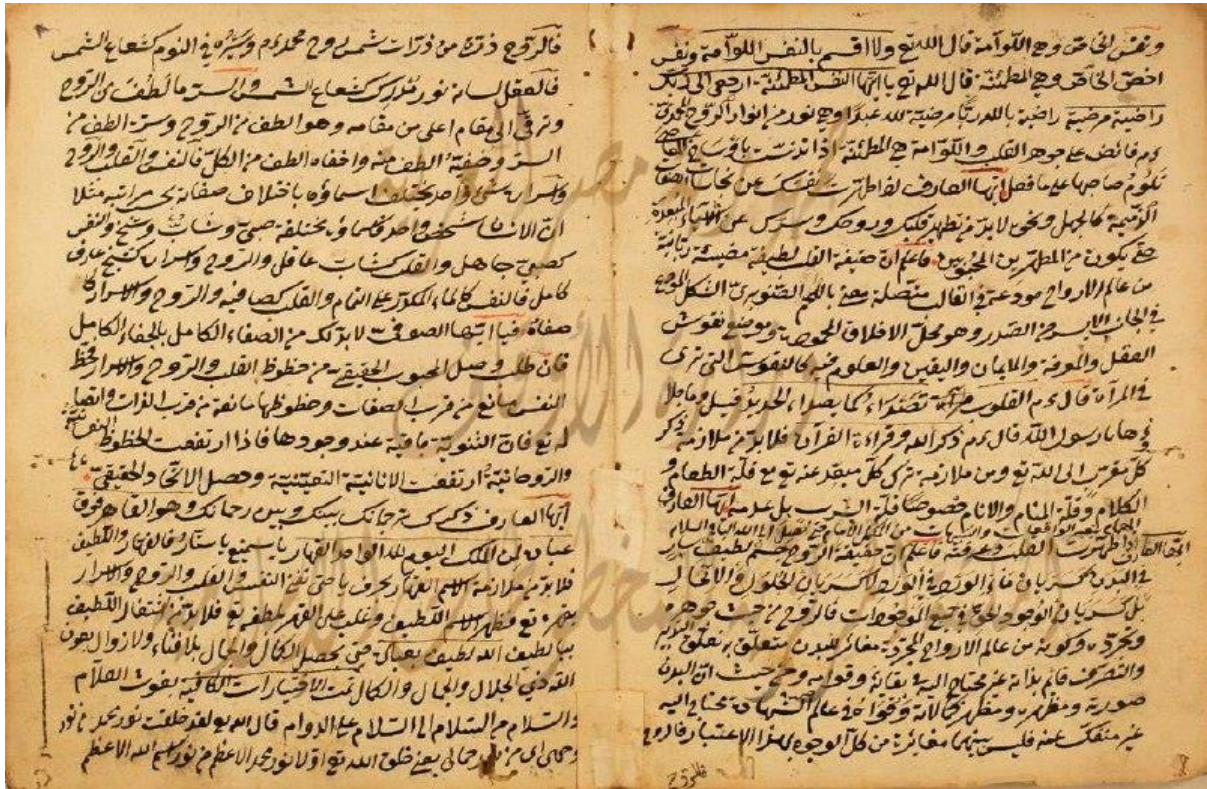 ونفس الخاص وهي اللوامة قال الله تع ولا اقسم بالنفس اللوامة ونفس
اخص الخاص وهي المطمئنة قال الله تع يا ايتها النفس المطمئنة ارجعي الى ربك
راضية مرضية راضية بالله ربا مرضية لله عبدا وهي نور من انوار الروح
فائض على جوهر القلب واللوامة هي المطمئنة اذا تدنست
تلوم صاحبها على ما فعل ايها العارف اذا طهرت نفسك عن نجاسات
الذميمة كالجهل ونحوه لابد من تطهر قلبك وروحك وسرك عن
حتى يكون من المطهرين المحبوبين فاعلم ان حقيقة القلب لطيفة مضيئة ربانية
من عالم الارواح مودعة في القالب متصلة باللحم الصنوبري الشكل المودع
في الجانب الايسر من الصدر وهو محل الاخلاق المحمودة وموضع نقوش
العقل والمعرفة والايمان واليقين والعلوم فيه كالنقوش التي ترى
في المرآة قال ءم القلوب تصدأ كما يصدأ الحديد قيل وما جلا
ؤها يا رسول الله قال ءم ذكر الله وقراءة القرآن فلابد من ملازمة ذكر
كل مقرب الى الله تع ومن ملازمة ترك كل مبعد عنه تع مع قلة الطعام و
الكلام وقلة المنام والانام خصوصا قلة الشرب بل عدمه ايها العارف
اذا طهرت القلب وعرفته فاعلم ان حقيقة الروح جسم لطيف سار
في البدن كسريان ماء الورد في الورد لا كسريان الحلول والاتحاد
بل كسريان الوجود الحق في جميع الموجودات فالروح من حيث جوهره
وتجرده وكونه من عالم الارواح المجردة مغائر للبدن متعلق به تعلق التدبير
والتصرف قائم بذاته غير محتاج اليه في بقائه وقوامه ومن حيث ان البدن
صورته ومظهره ومظهر كمالاته وقواه في عالم الشهادة محتاج اليه
غير منفك عنه فليس بينهما مغائرة من كل الوجوه بهذا الاعتبار فالروح
فالروح
فالروح ذرة من ذرات شمس روح محمد ءم وسيره في النوم كشعاع الشمس
فالعقل لسانه نور مدرك كشعاع الشمس والسر ما لطف من الروح
وترقى الى مقام اعلى من مقامه وهو الطف من الروح وسره الطف من
السر وخفيه الطف منه واخفاه الطف من الكل فالنفس والقلب والروح
والاسرار شيء واحد يختلف اسماؤه باختلاف صفاته مراتبه مثلا
ان الانسان شخص واحد واسماؤه مختلفة صبي وشاب وشيخ والنفس
كصبي جاهل والقلب كشاب عاقل والروح والاسرار كشيخ عارف
كامل فالنفس كالماء المكدر على التمام والقلب كصافيه والروح والاسرار كا
صفاه فيا ايها الصوفي لابد لك من الصفاء الكامل بالجفاء الكامل
فان طلب وصل المحبوب الحقيقي من حظوظ القلب والروح والاسرار وحظ
النفس مانع من قرب الصفات وحظوظها مانعة من قرب الذات
له تع فان الثنوية باقية عند وجودها فاذا ارتفعت الحظوظ النفسانية
والروحانية ارتفعت الانانية التعينية وحصل الاتحاد الحقيقي
ايها العارف ذكرك ترجمانك بينك وبين رحمانك وهو القاهر فوق
عباده لمن الملك اليوم لله الواحد القهار يا سميع يا ستار فالقهار واللطيف
فلابد من ملازمة الاسم القهار بحرف يا حتى النفس والقلب والروح والاسرار
بقهره تع فظهر الاسم اللطيف وغلب على القهر لطفه تع فلابد من اشتغال اللطيف
بيا لطيف الله لطيف بعباده حتى يحصل الكمال والجمال بلا فناء ولا زوال بعون
الله ذي الجلال والجمال والكمال تمت الاختيارات الكافية
والسلام من السلام الى السلام على الدوام قال الله تع لقد خلقت نور محمد من نور
وجهي اي من نور جمالي يعني خلق الله تع اولا نور محمد الاعظم من نور اسم الله الاعظم